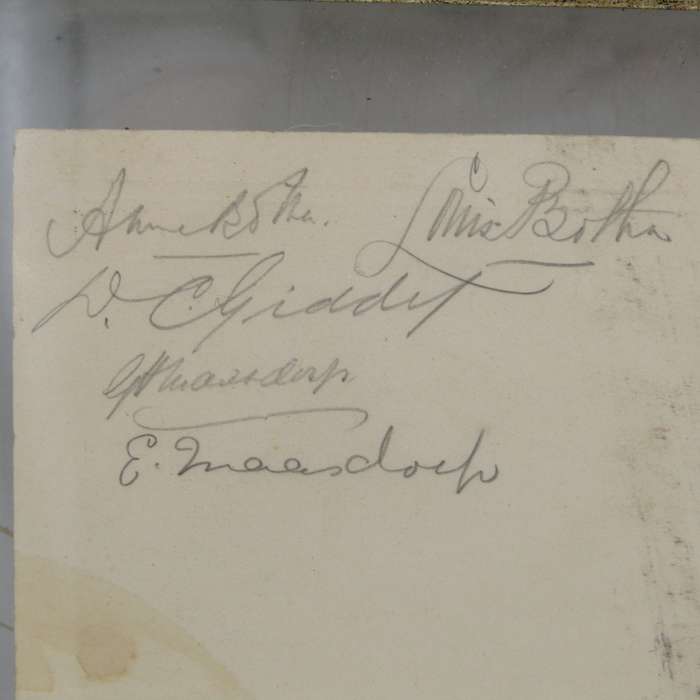 Annie Botha. Louis Botha
D. C. Giddy
GHMaasdorp
E. Maasdorp